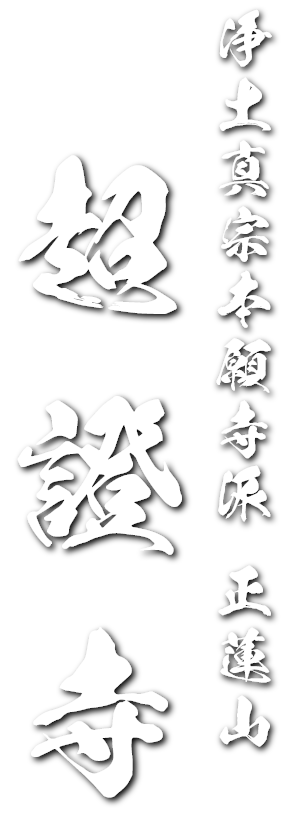 浄土真宗本願寺派 正蓮山
超證寺